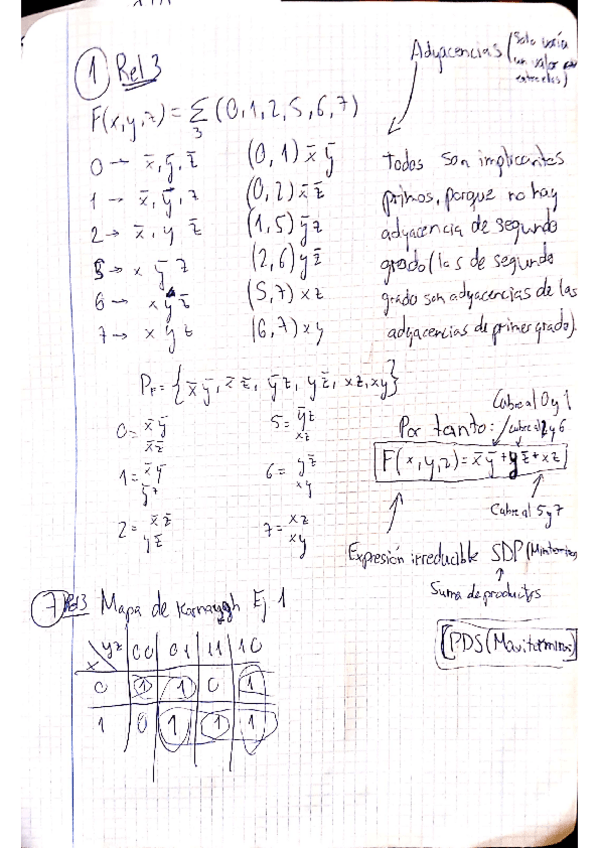 ① Rel 3
Adyacencias (Solo varía
un valor
entre ellos)
F(x,y,z) = Σ₃ (0,1,2,5,6,7)
0 → x̄, ȳ, z̄ (0,1) x̄ ȳ
1 → x̄, ȳ, z (0,2) x̄ z̄
2 → x̄, y z̄ (1,5) ȳ z
5 → x ȳ z (2,6) y z̄
6 → x y z̄ (5,7) x z
7 → x y z (6,7) x y
todos son implicantes
primos, porque no hay
adyacencia de segundo
grado (las de segundo
grado son adyacencias de las
adyacencias de primer grado).
= {x̄ ȳ, x̄ z̄, ȳ z, y z̄, xz, xy}
0 = x̄ ȳ
x̄ z̄
1 = x̄ ȳ
ȳ z
2 = x̄ z̄
y z̄
5 = ȳ z
xz
6 = y z̄
xy
7 = xz
xy
Cubre al 0 y 1
Por tanto: Cubre al 2 y 6
F(x,y,z) = x̄ ȳ + y z̄ + xz
Cubre al 5 y 7
Expresión irreducible SDP (Mintérminos)
Suma de productos
[PDS (Maxitérminos)]
⑦ Rel3 Mapa de Karnaugh Ej 1
x \ yz 00 01 11 10
0 1 1 0 1
1 0 1 1 1